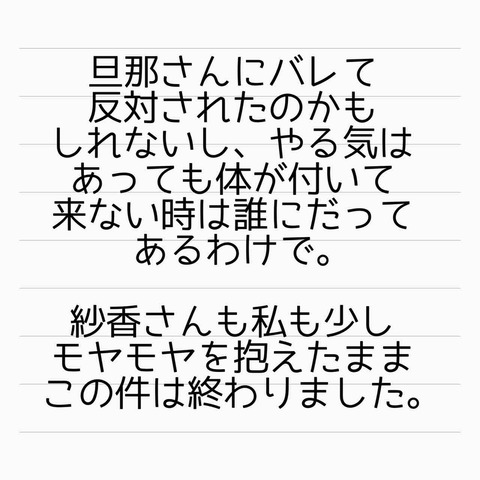 旦那さんにバレて
反対されたのかも
しれないし、やる気は
あっても体が付いて
来ない時は誰にだって
あるわけで。
紗香さんも私も少し
モヤモヤを抱えたまま
この件は終わりました。